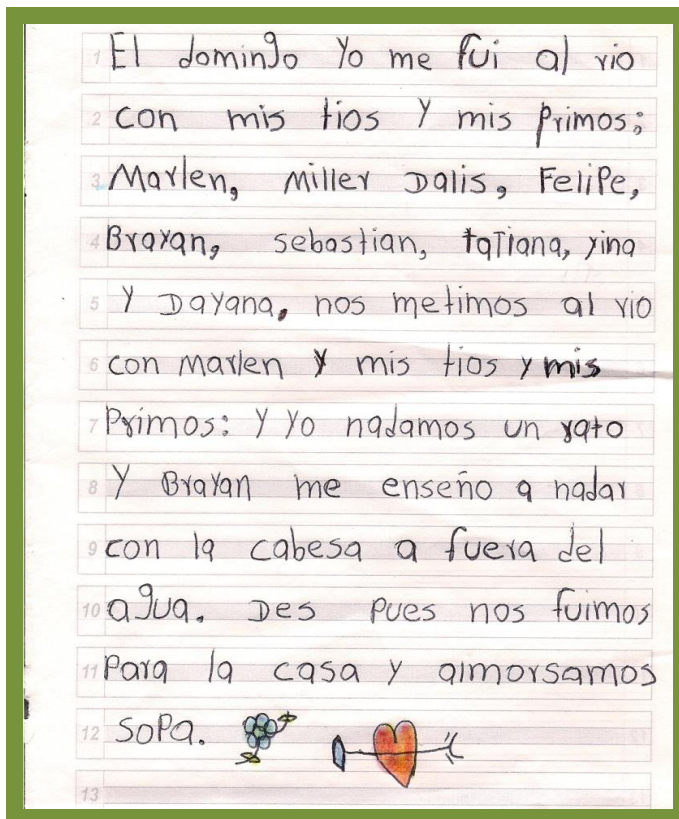 1 El domingo Yo me fui al rio
2 con mis tios Y mis Primos;
3 Marlen, Miller Dalis, Felipe,
4 Brayan, sebastian, tatiana, yina
5 Y Dayana, nos metimos al rio
6 con Marlen y mis tios y mis
7 Primos: Y Yo nadamos un rato
8 Y Brayan me enseño a nadar
9 con la cabesa a fuera del
10 agua. Des pues nos fuimos
11 Para la casa Y almorsamos
12 SoPa.
13